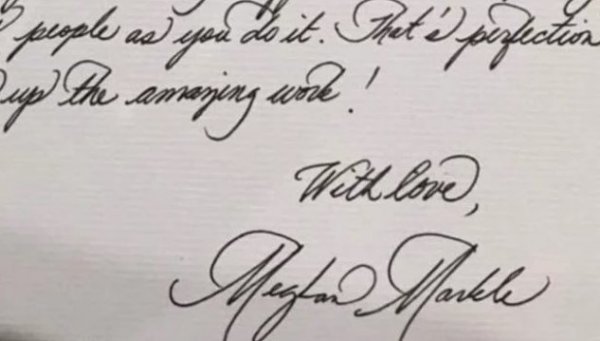 people as you do it. That's perfection
up the amazing work!
With love,
Meghan Markle